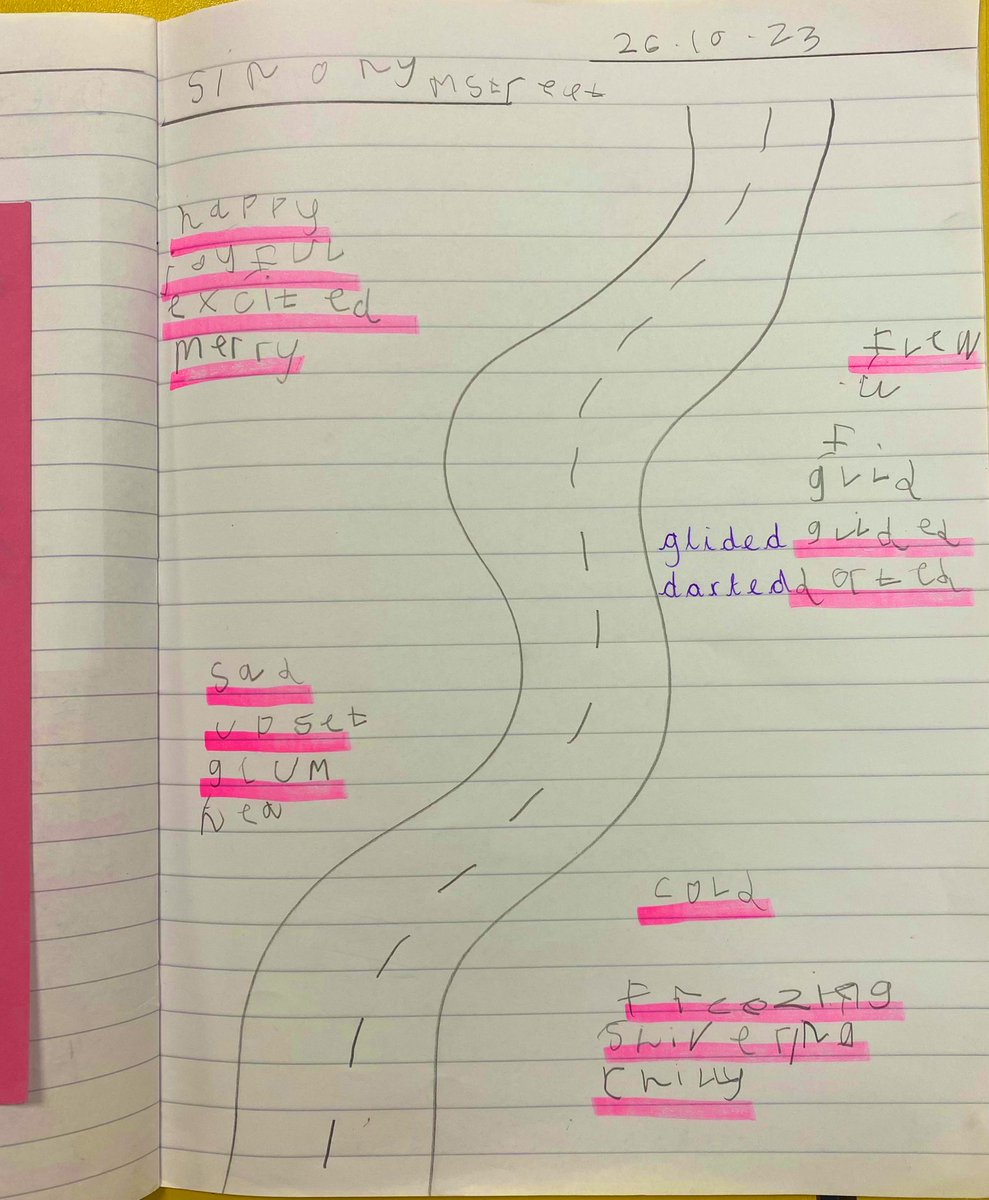 26.10.23
SINONYM Street
happy
joyful
excited
merry
flew
u
f.
glid
glided glided
darted dorted
sad
upset
glum
hea
cold
freezing
shivering
chilly